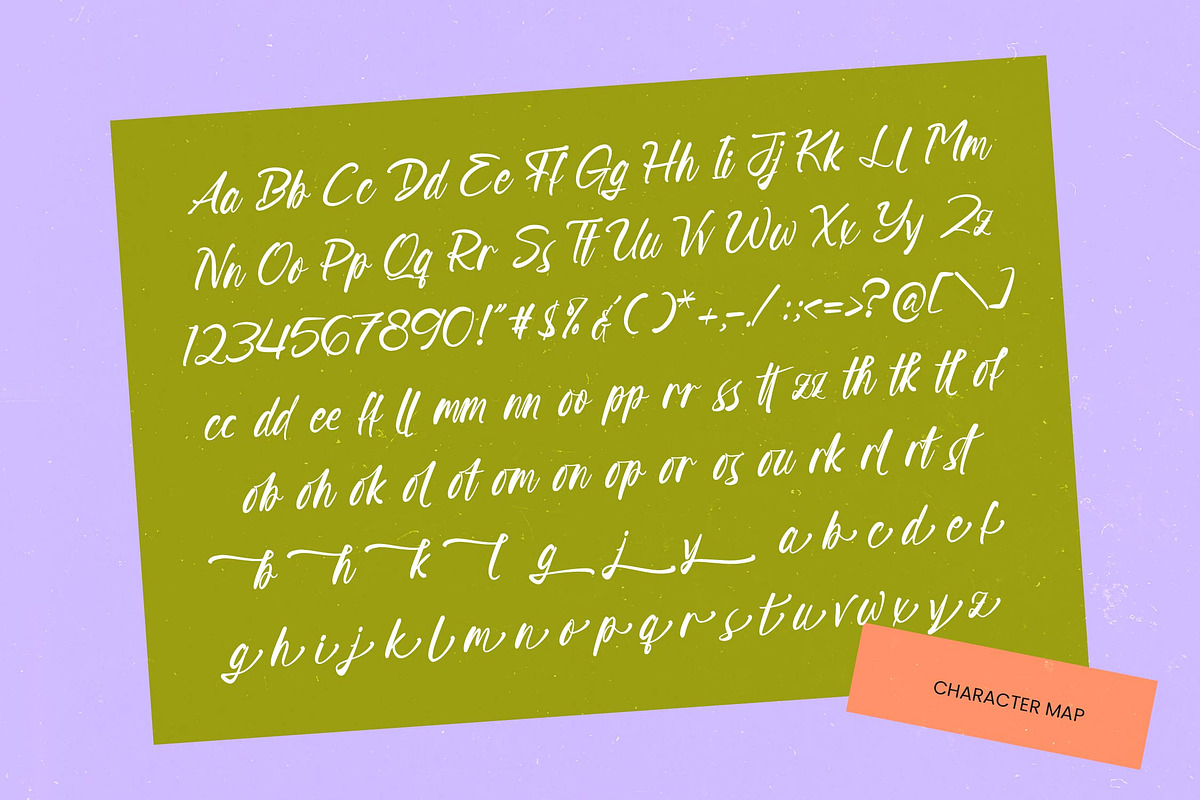 Aa Bb Cc Dd Ee Ff Gg Hh Ii Jj Kk Ll Mm
Nn Oo Pp Qq Rr Ss Tt Uu Vv Ww Xx Yy Zz
1234567890!"#$%&'()*+,-./:;<=>?@[\]
cc dd ee ff ll mm nn oo pp rr ss tt zz th tk tl of
ob oh ok ol ot om on op or os ou rk rl rt st
b h k l g j y a b c d e f
g h i j k l m n o p q r s t u v w x y z
CHARACTER MAP